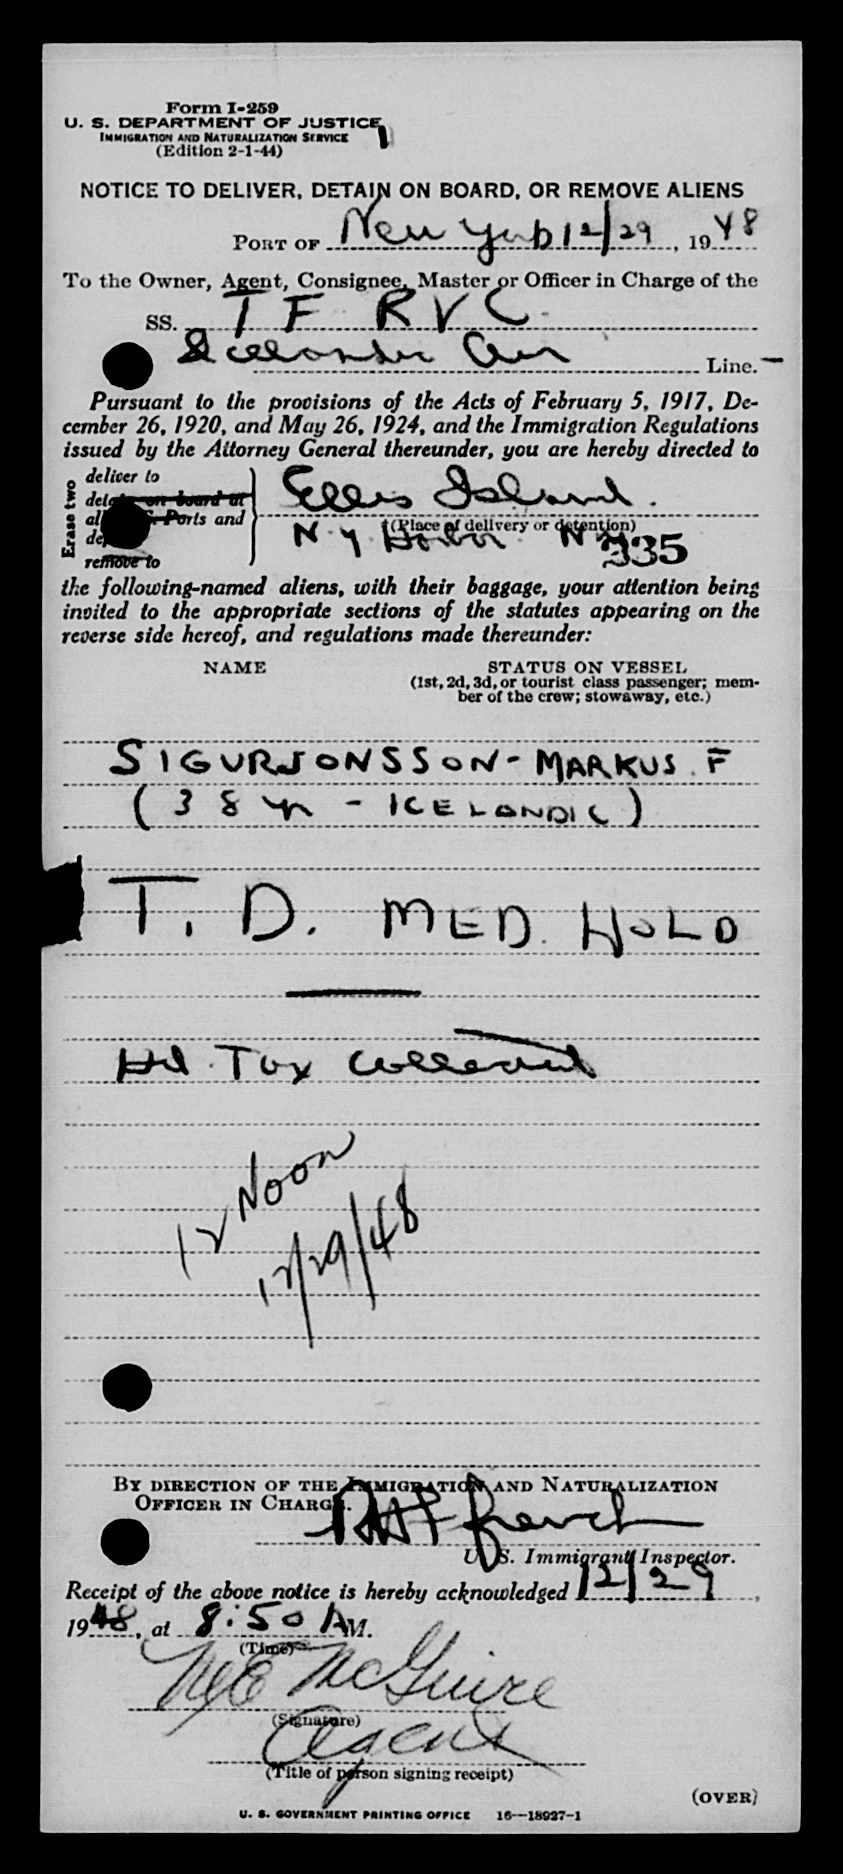 Form I-259
U. S. DEPARTMENT OF JUSTICE
IMMIGRATION AND NATURALIZATION SERVICE
(Edition 2-1-44)
NOTICE TO DELIVER, DETAIN ON BOARD, OR REMOVE ALIENS
PORT OF New York 12/29, 1948
To the Owner, Agent, Consignee, Master or Officer in Charge of the
SS. TF RVC
Icelandic Air Line.
Pursuant to the provisions of the Acts of February 5, 1917, De-
cember 26, 1920, and May 26, 1924, and the Immigration Regulations
issued by the Attorney General thereunder, you are hereby directed to
Erase two
deliver to
detain on board at
Ports and
remove to
Ellis Island.
(Place of delivery or detention)
N Y Harbor N Y
335
the following-named aliens, with their baggage, your attention being
invited to the appropriate sections of the statutes appearing on the
reverse side hereof, and regulations made thereunder:
NAME STATUS ON VESSEL
(1st, 2d, 3d, or tourist class passenger; mem-
ber of the crew; stowaway, etc.)
SIGURJONSSON - MARKUS. F
(38 yr - ICELANDIC)
T. D. MED. HOLD
Hd Tax Collected
12 Noon
12/29/48
BY DIRECTION OF THE IMMIGRATION AND NATURALIZATION
OFFICER IN CHARGE.
French
U. S. Immigrant Inspector.
Receipt of the above notice is hereby acknowledged 12/29,
1948, at 8:50 AM.
(Time)
McGuire
(Signature)
Agent
(Title of person signing receipt)
(OVER)
U. S. GOVERNMENT PRINTING OFFICE 16—18927-1